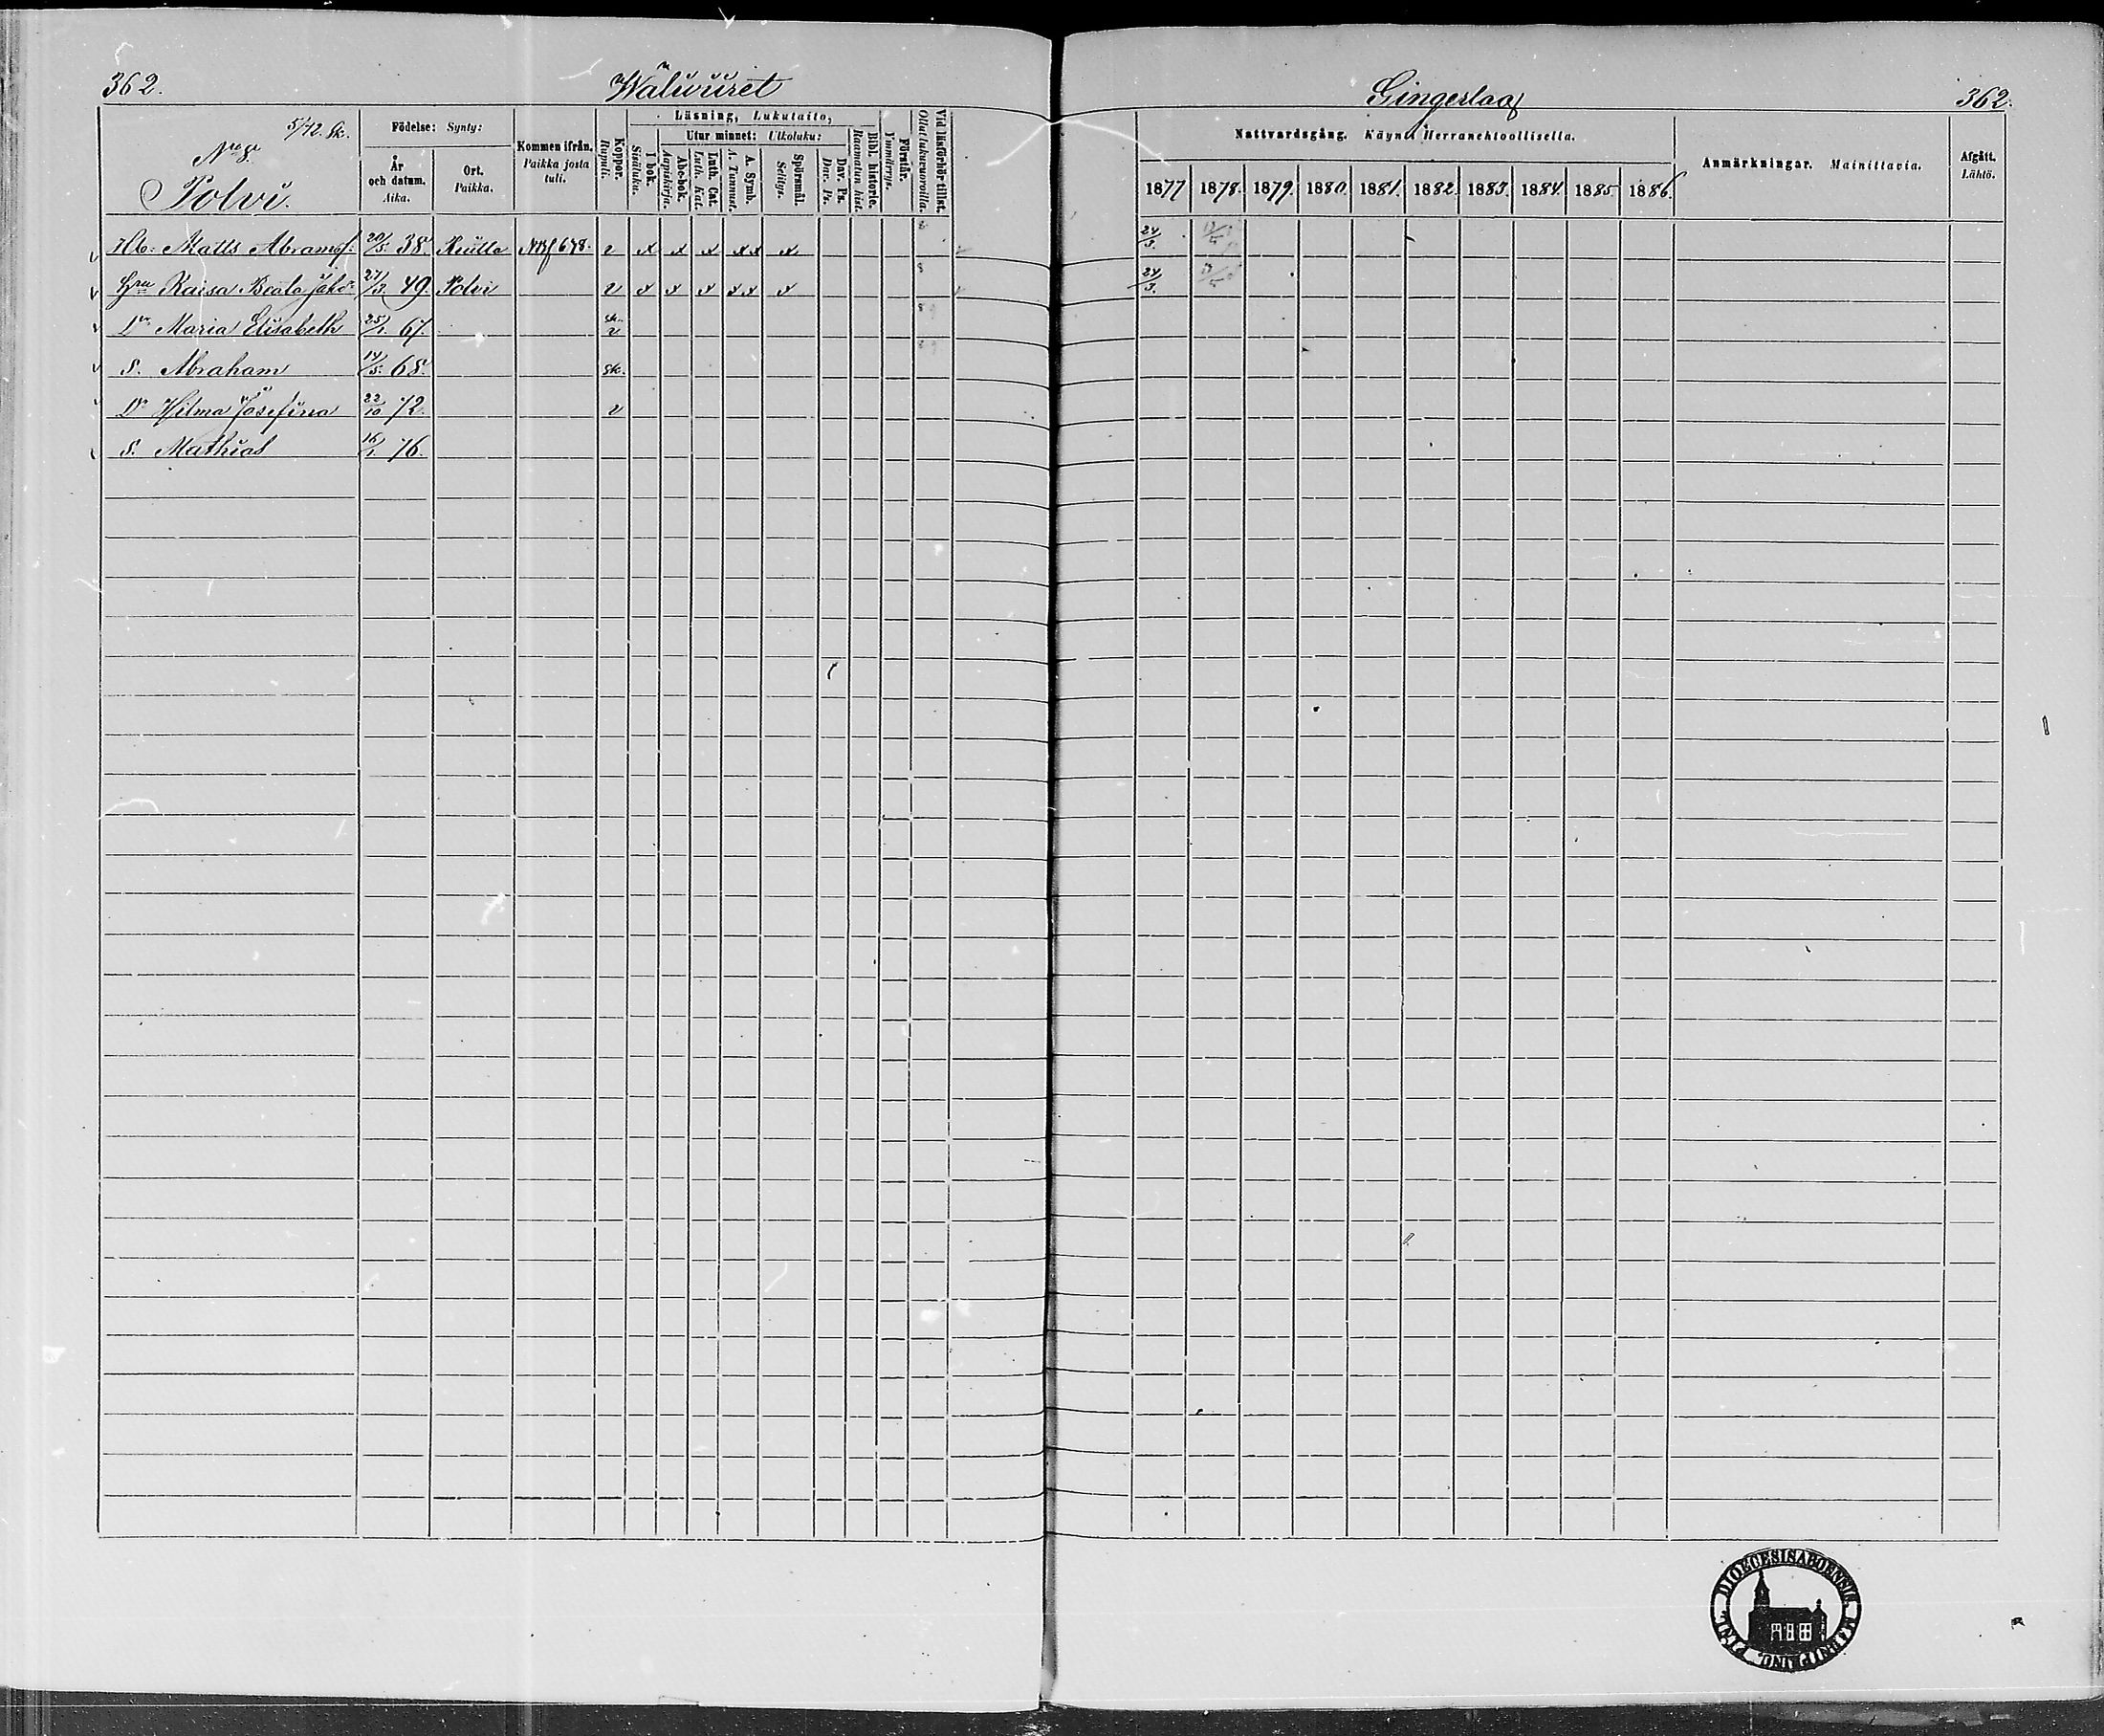 362. Waluuret Gingerlax 362.
5/12. Sk.
Nro 8.
Polvi.
Födelse: Synty:
År och datum. Aika.
Ort. Paikka.
Kommen ifrån. Paikka josta tuli.
Koppor. Rupuli.
Läsning, Lukutaito,
I bok. Sisäluku.
Utur minnet: Ulkoluku:
Abc-bok. Aapiskirja.
Luth. Cat. Luth. Kat.
A. Symb. A. Tunnust.
Spörsmål. Selitys.
Dav. Ps. Dav. Ps.
Bibl. historie. Raamatun hist.
Förstår. Ymmärrys.
Vid läsförhör tillst. Ollut lukuvuoroilla.
Nattvardsgång. Käynti Herranehtoollisella.
1877 1878. 1879. 1880. 1881. 1882. 1883. 1884. 1885. 1886.
Anmärkningar. Mainittavia.
Afgått. Lähtö.
Matts Abramsf. 20/5. 38. 678. v x x x x x x 24/3.
Hru Kaisa Beata 27/3. 49. Polvi v x x x x x x 24/3.
Dr Maria Elisabeth 25/1. 67. v
S. Abraham 14/5. 68. sk.
Dr Hilma Josefina 22/10 72. v
S. Mathias 16/1. 76.
DIOECESIS ABOENSIS